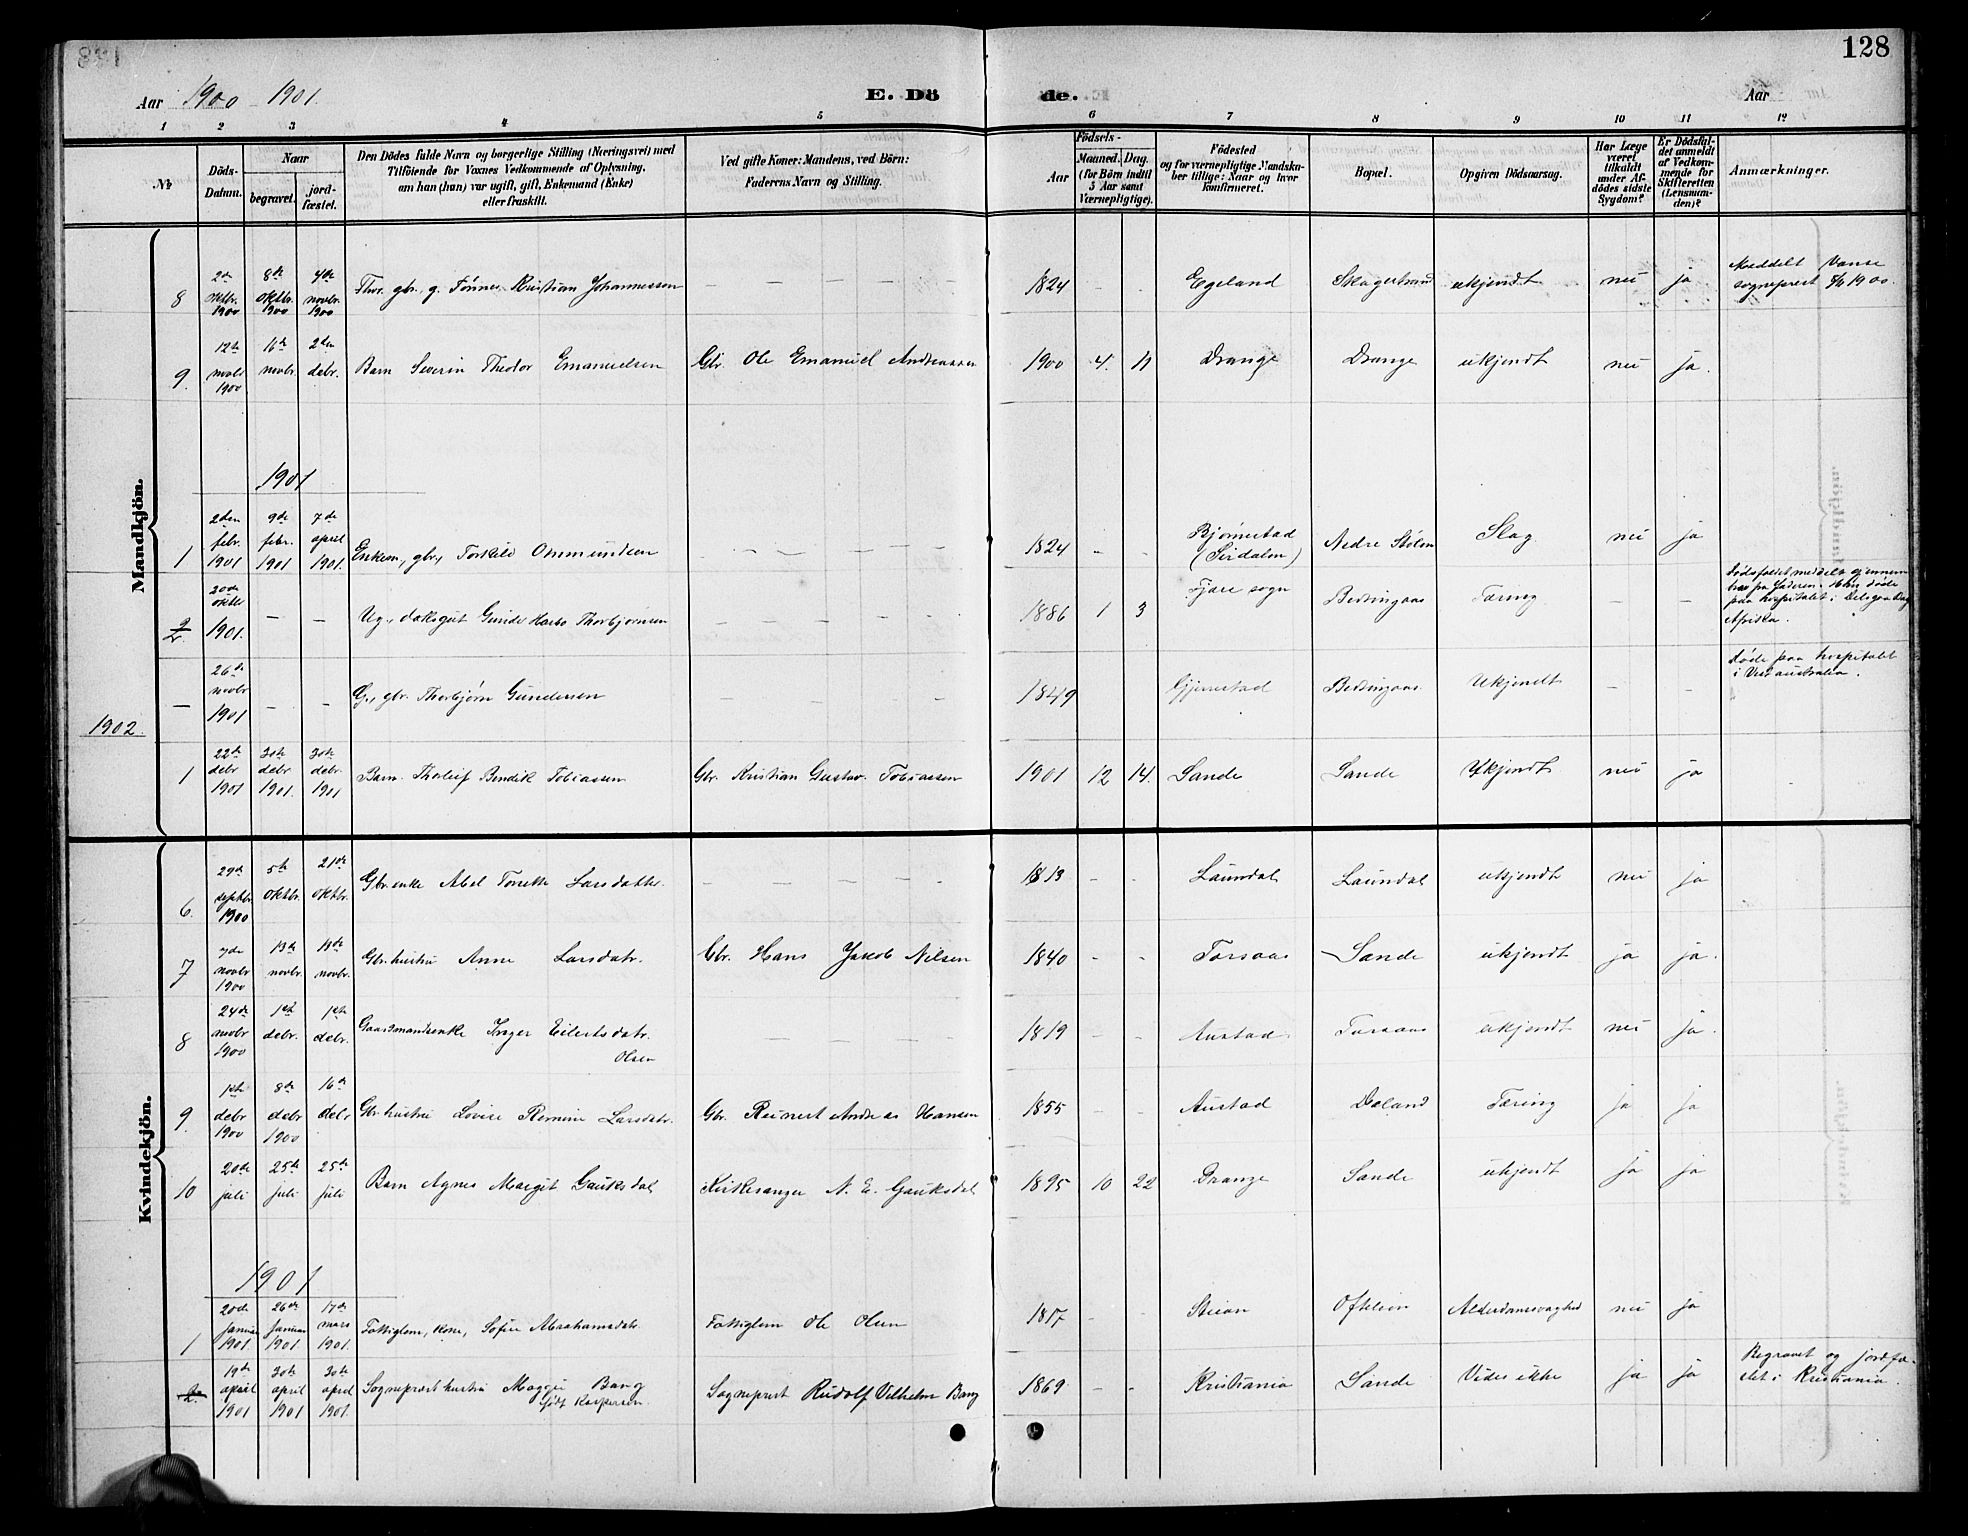 128
Aar 1900-1901.
E. Dö de.
Aar
1 2 3 4 5 6 7 8 9 10 11 12
№
Döds-Datum.
Naar
begravet.
jord-fæstet.
Den Dödes fulde Navn og borgerlige Stilling (Næringsvei) med
Tilföiende for Voxnes Vedkommende af Oplysning,
om han (hun) var ugift, gift, Enkemand (Enke)
eller fraskilt.
Ved gifte Koner: Mandens, ved Börn:
Faderens Navn og Stilling.
Aar
Födsels-
Maaned. Dag.
(for Börn indtil
5 Aar samt
Værnepligtige).
Födested
og for værnepligtige Mandska-
ber tillige: Naar og hvor
konfirmeret.
Bopæl.
Opgiven Dödsaarsag.
Har Læge
været
tilkaldt
under Af-
dödes sidste
Sygdom?
Er Dödsfal-
det anmeldt
af Vedkom-
mende for
Skifteretten
(Lensman-
den)?
Anmærkninger.
Mandkjön.
8 2den oktbr. 1900 8de oktbr. 1900 4de novbr. 1900 Thor. gbr., g. Tønnes Kristian Johannessen – – – – 1824 - - Egeland Skagestrand ukjendt nei ja Meddelt Vanse sogneprest 1900.
9. 12te novbr 1900 16de novbr. 2den debr. Barn Severin Theodor Emanuelsen Gbr. Ole Emanuel Andreassen 1900 4. 11 Drange Drange ukjendt nei ja.
1901
1 2den febr. 1901 9de febr. 1901 7de april 1901. Enkem., gbr., Torkild Ommundsen – – – – 1824 - - Bjørnestad (Sirdalen) Nedre Stølen Slag nei ja
2 20de oktbr 1901. – – Ug., daksgut Gunder Thorbjørnsen – – – – 1886 1 3 Fjære sogn Tæring – – Dødsfaldet meddelt gjennem paa Jæderen. Han døde paa hospitalet i Delagoa Bay Afrika.
– 26de novbr 1901 - - G., gbr. Thorbjørn Gundersen – – – – 1849 Gjerrestad Ukjendt – – Døde paa hospitalet i Vest australia.
1902.
1 22de debr 1901 30te debr 1901. 30te debr. 1901 Barn. Thorleif Bendik Tobiassen Gbr. Kristian Gustav. Tobiassen 1901 12 14. Sande Sande Ukjendt nei ja
Kvindekjön.
6. 29de septbr 1900 5te oktbr. 21de oktbr. Gbr.enke Abel Tonette Larsdatter. – – – – 1813 - - Laundal Laundal ukjendt nei ja
7 7de novbr 1900 13de novbr. 18de novbr. Gbr.hustru Anne Larsdatr. Gbr. Hans Jakob Nilsen 1840 - - Torsaas Sande ukjendt ja ja.
8 24de novbr 1900 1ste debr. 1ste debr. Gaardmandsenke Inger Eilertsdatr. Olsen – – – – 1819 - - Austad Torsaas ukjendt nei ja.
9. 1ste debr 1900 8de debr 1900 16de debr Gbr.hustru Lovise Romine Larsdatr. Gbr. Reinert Andreas Hansen 1855 - - Austad Døland Tæring ja ja
10 20de juli 25de juli 25de juli Barn Agnes Margit Gauksdal Kirkesanger N. E. Gauksdal 1895 10 22 Drange Sande ukjendt ja ja
1901
1 20de Januar 1901. 26de Januar 1901. 17de mars 1901. Fattiglem, kone, Sofie Abrahamsdatr. Fattiglem Ole Olsen 1817 - - Steian Oftebro Alderdomssvaghed nei ja
2. 19de april 1901 30te april 1901 30te april 1901. Sogneprest hustru Maggie Bang født Kaspersen. Sogneprest Rudolf Vilhelm Bang 1869 - - Kristiania Sande Vides ikke ja ja Begravet og jordfæstet i Kristiania.